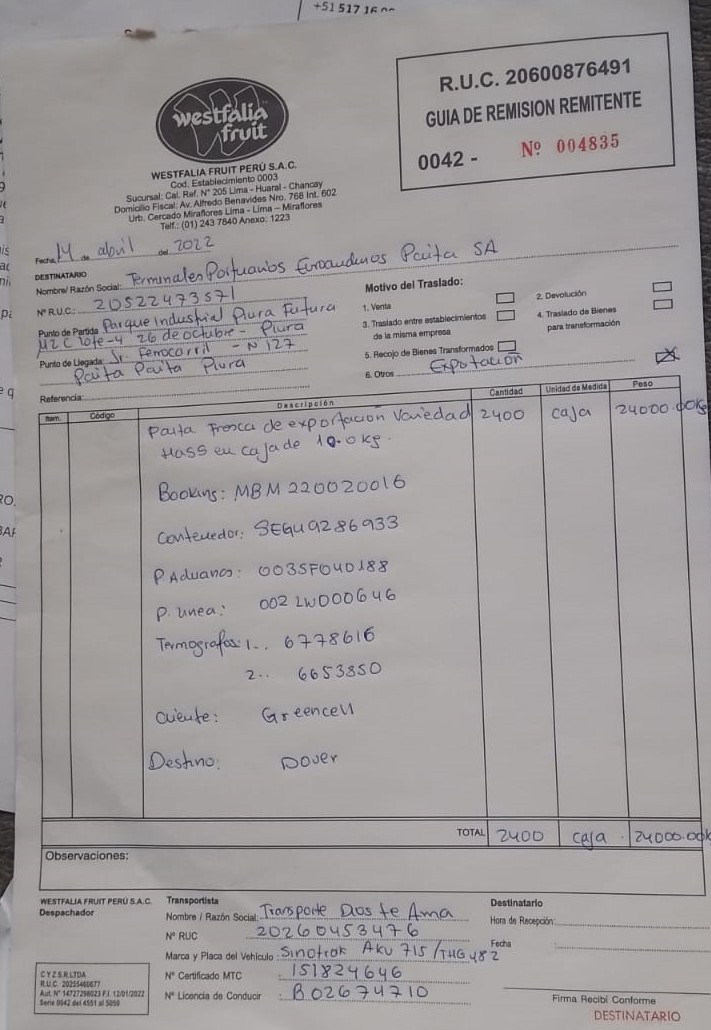 +51 517 16
westfalia
fruit
R.U.C. 20600876491
GUIA DE REMISION REMITENTE
0042 - Nº 004835
WESTFALIA FRUIT PERÚ S.A.C.
Cod. Establecimiento 0003
Sucursal: Cal. Ref. N° 205 Lima - Huaral - Chancay
Domicilio Fiscal: Av. Alfredo Benavides Nro. 768 Int. 602
Urb. Cercado Miraflores Lima - Lima – Miraflores
Telf.: (01) 243 7840 Anexo: 1223
Fecha, 14 de abril del 2022
DESTINATARIO
Nombre/ Razón Social: Terminales Portuarios Euroandinos Paita SA
N° R.U.C.: 20522473571
Punto de Partida Parque Industrial Piura Futura
MZ C lote-4 26 de octubre - Piura
Punto de Llegada: Jr. Ferrocarril - N 127
Paita Paita Piura
Referencia:
Motivo del Traslado:
1. Venta
2. Devolución
3. Traslado entre establecimientos
de la misma empresa
4. Traslado de Bienes
para transformación
5. Recojo de Bienes Transformados
6. Otros Expotación
Item. Código Descripción Cantidad Unidad de Medida Peso
Palta Fresca de exportacion Variedad 2400 caja 24000.00Kg
Hass en caja de 10.0 kg.
Booking: MBM220020016
Contenedor: SEGU9286933
P. Aduanas: 0035F040188
P. Linea: 002 LW000646
Termografos: 1.. 6778616
2.. 6653850
Cliente: Greencell
Destino: Dover
TOTAL 2400 caja 24000.00k
Observaciones:
WESTFALIA FRUIT PERÚ S.A.C.
Despachador
Transportista
Nombre / Razón Social: Transporte Dios te Ama
N° RUC 20260453476
Marca y Placa del Vehículo: Sinotrok AKU 715/THG482
N° Certificado MTC : 151824646
N° Licencia de Conducir : B02674710
Destinatario
Hora de Recepción:
Fecha
C Y Z S.R.LTDA
R.U.C. 20255460677
Aut. N° 14727258023 F.I. 12/01/2022
Serie 0042 del 4551 al 5050
Firma Recibí Conforme
DESTINATARIO